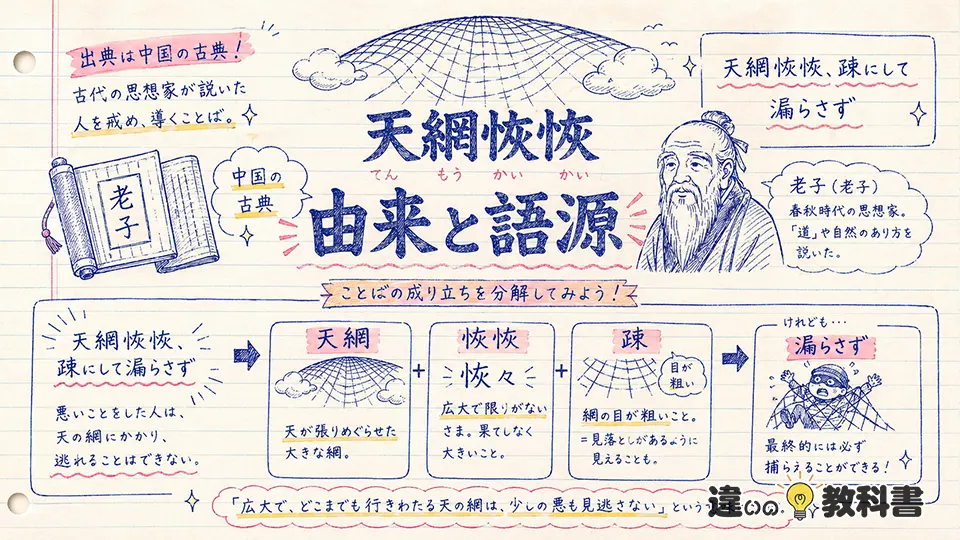 出典は中国の古典！
古代の思想家が説いた
人を戒め、導くことば。
老子
中国の
古典
天網恢恢
てん もう かい かい
由来と語源
天網恢恢、疎にして
漏らさず
老子（老子）
春秋時代の思想家。
「道」や自然のあり方を
説いた。
ことばの成り立ちを分解してみよう！
天網恢恢、
疎にして漏らさず
悪いことをした人は、
天の網にかかり、
逃れることはできない。
天網
天が張りめぐらせた
大きな網。
+
恢恢
恢々
広大で限りがない
さま。果てしなく
大きいこと。
+
疎
目が
粗い
網の目が粗いこと。
=見落としがあるように
見えることも。
けれども…
漏らさず
最終的には必ず
捕らえることができる！
「広大で、どこまでも行きわたる天の網は、少しの悪も見逃さない」という
違いの教科書